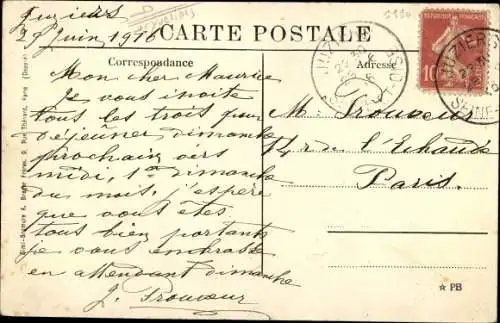 Juziers
29 Juin 1916
CARTE POSTALE
Correspondance
Adresse
RÉPUBLIQUE FRANÇAISE
10
JUZIERS
SEINE
Mon cher Maurice
Je vous invite
tous les trois pour
déjeûner dimanche
prochain vers
midi, 1er dimanche
du mois, j'espère
que vous êtes
tous bien portants
je vous embrasse
en attendant dimanche
J. Prouveur
M. Prouveur
14, rue de l'Echaudé
Paris.
★ PB